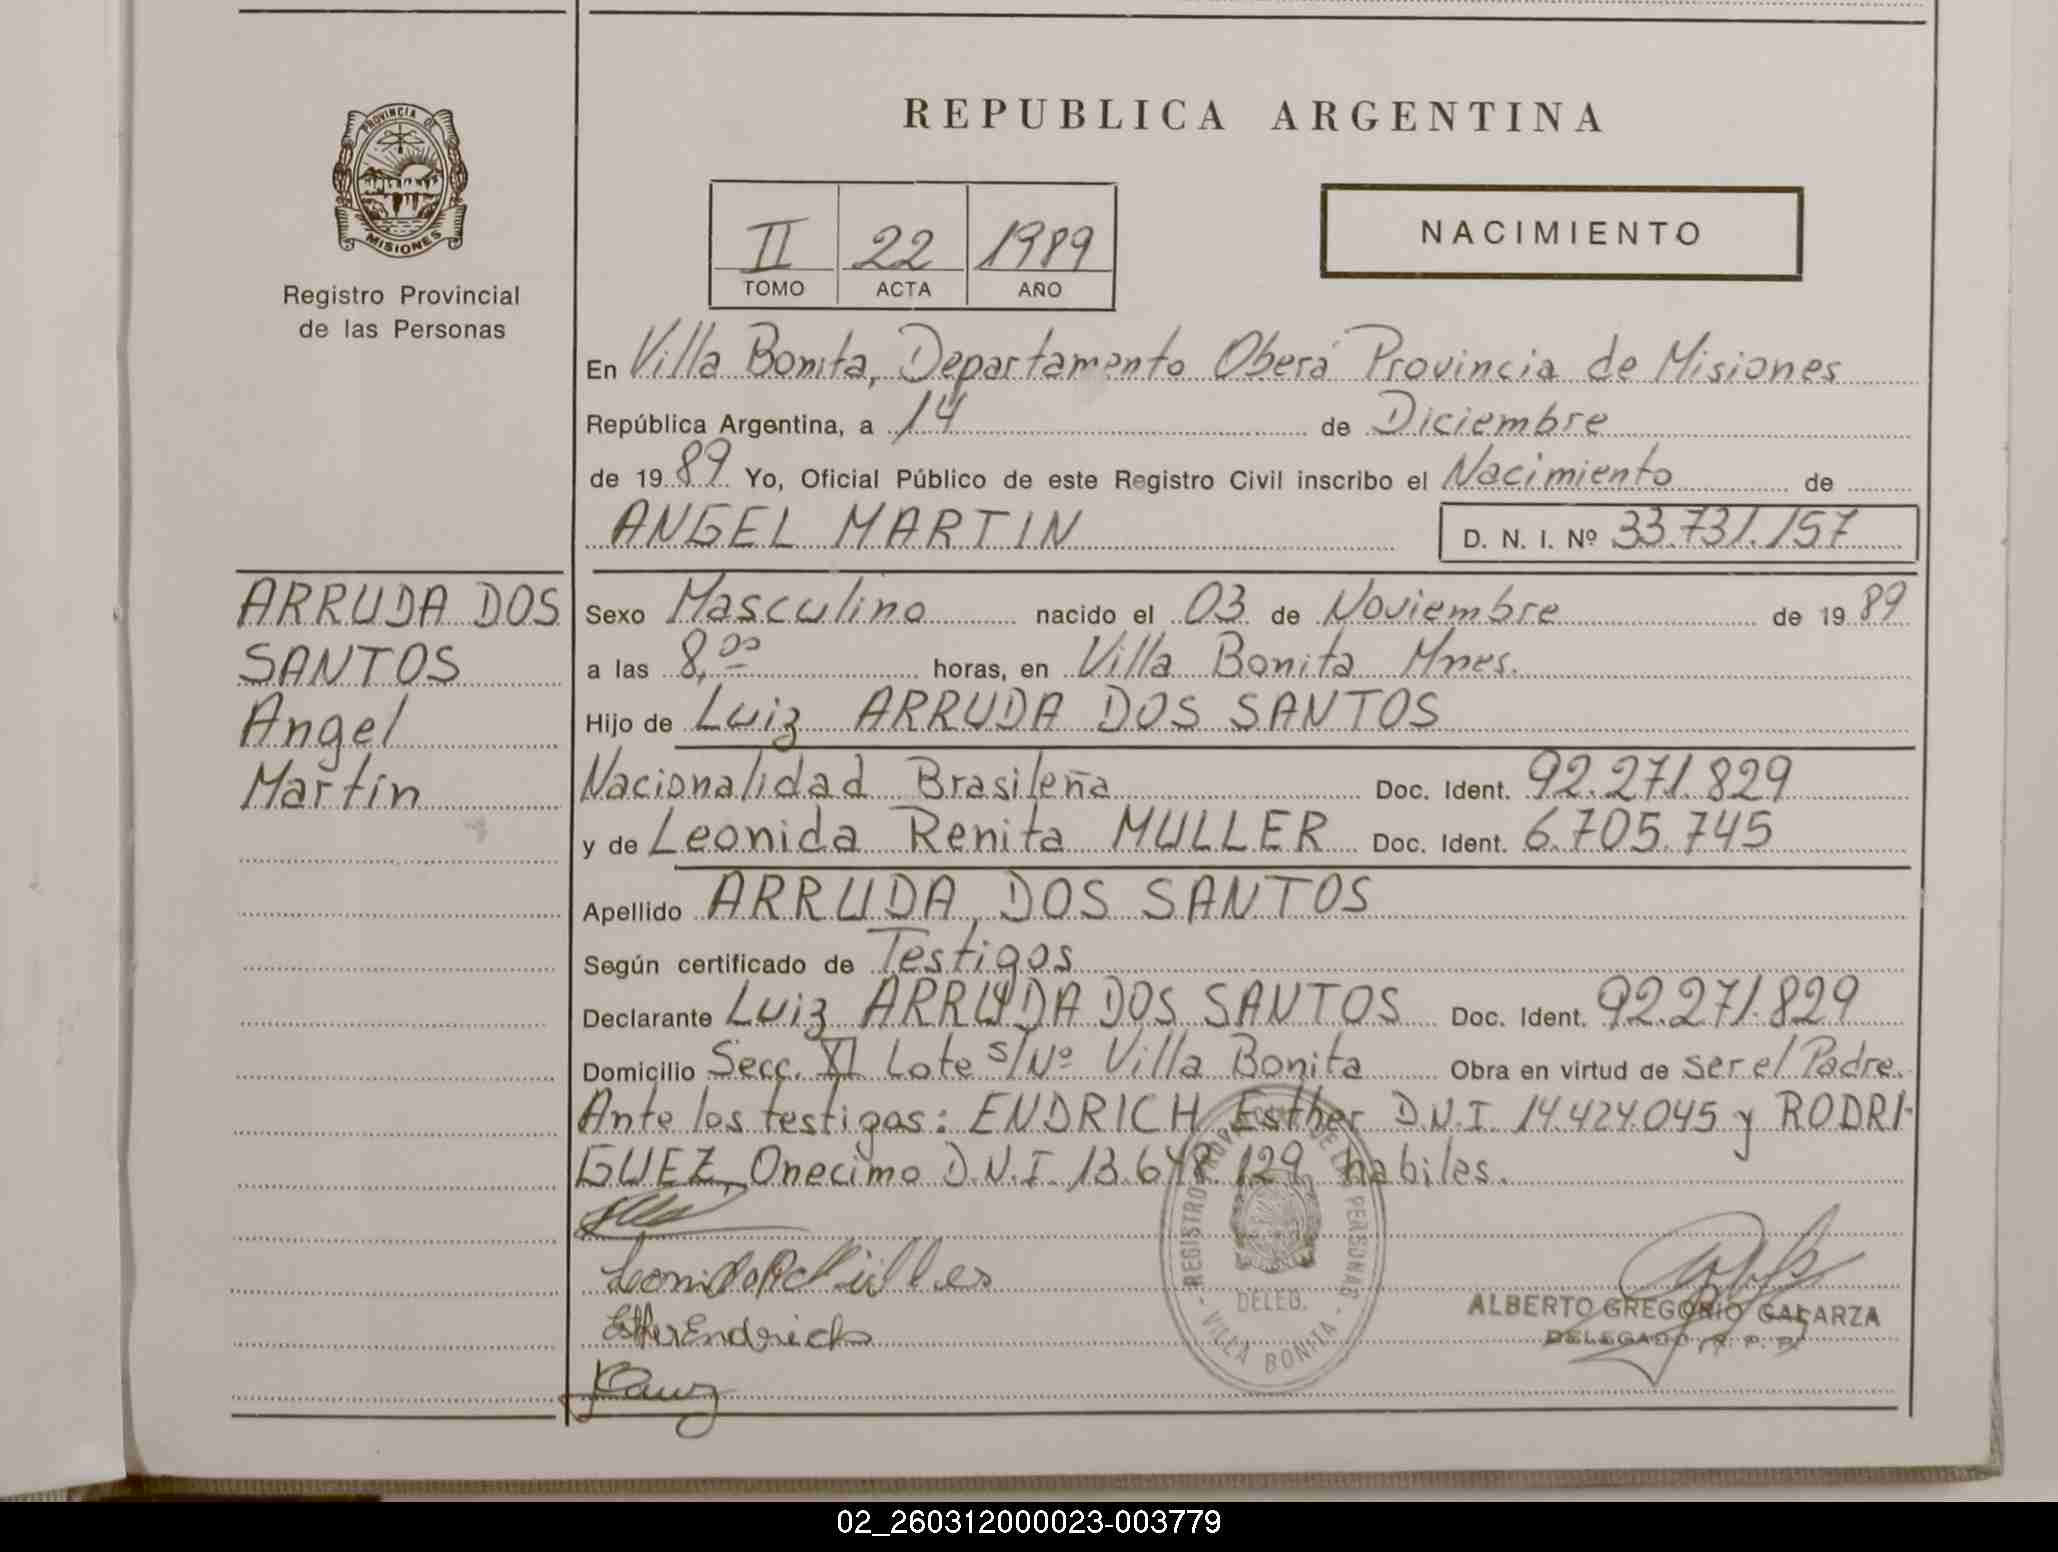 PROVINCIA DE
MISIONES
Registro Provincial
de las Personas
REPUBLICA ARGENTINA
II 22 1989
TOMO ACTA AÑO
NACIMIENTO
En Villa Bonita, Departamento Oberá Provincia de Misiones
República Argentina, a 14 de Diciembre
de 1989 Yo, Oficial Público de este Registro Civil inscribo el Nacimiento de
ANGEL MARTIN D. N. I. Nº 33.731.157
ARRUDA DOS
SANTOS
Angel
Martín
Sexo Masculino nacido el 03 de Noviembre de 1989
a las 8,00 horas, en Villa Bonita Mnes.
Hijo de Luiz ARRUDA DOS SANTOS
Nacionalidad Brasileña Doc. Ident. 92.271.829
y de Leonida Renita MULLER Doc. Ident. 6.705.745
Apellido ARRUDA DOS SANTOS
Según certificado de Testigos
Declarante Luiz ARRUDA DOS SANTOS Doc. Ident. 92.271.829
Domicilio Secc. XI Lote s/Nº Villa Bonita Obra en virtud de ser el Padre.
Ante los testigos: ENDRICH Esther D.N.I. 14.424.045 y RODRI-
GUEZ, Onecimo D.N.I. 13.648.129 habiles.
Esther Endrich
REGISTRO PROVINCIAL DE LAS PERSONAS
DELEG.
- VILLA BONITA -
ALBERTO GREGORIO GALARZA
DELEGADO R. P. P.
02_260312000023-003779